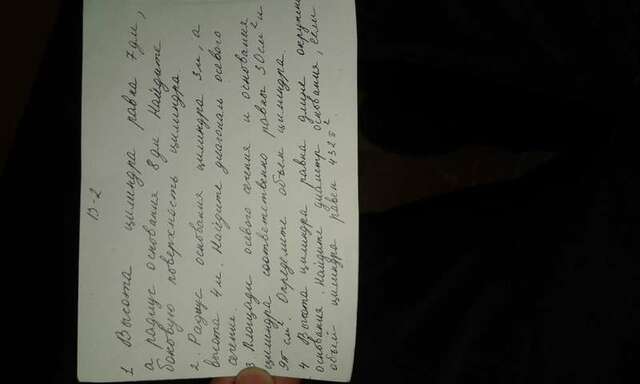 В-2
1 Высота цилиндра равна 7 дм,
а радиус основания 8 дм Найдите
боковую поверхность цилиндра.
2. Радиус основания цилиндра 3м, а
высота 4 м. Найдите диагональ осевого
сечения.
3 Площади осевого сечения и основания
цилиндра соответственно равны 30 см² и
9π см². Определите объем цилиндра.
4 Высота цилиндра равна длине окружн
основания. Найдите диаметр основания, если
объём цилиндра равен 432π².